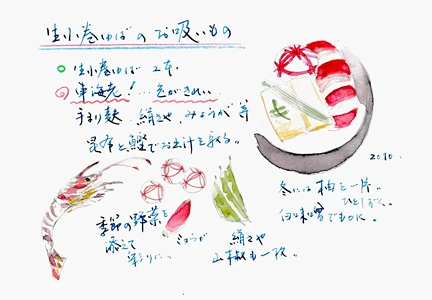 生小巻ゆばのお吸いもの
生小巻ゆば 2本
車海老! 色がきれい
手まり麩 絹さや みょうが 等
昆布と鰹でお出汁を取る。
2010.
冬には柚を一片。
白味噌でも
季節の野菜を
添えて
彩りに。
ミョウガ
絹さや
山椒も一枚。